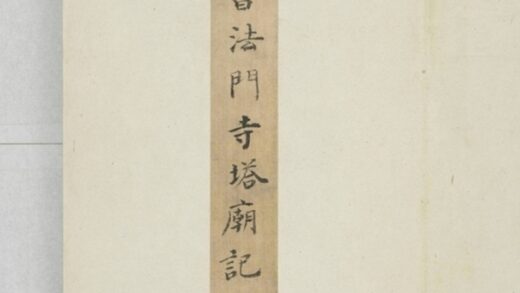 法門寺塔廟記